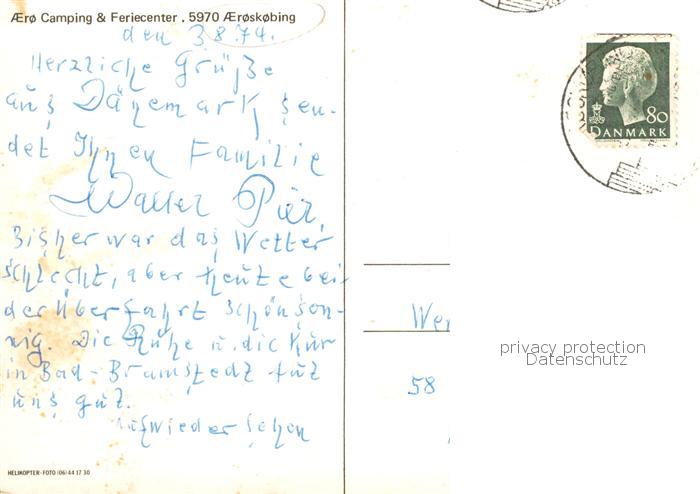 Ærø Camping & Feriecenter . 5970 Ærøskøbing
den 3.8.74.
Herzliche Grüße
aus Dänemark sen-
det Ihnen Familie
Walter
Bisher war das Wetter
schlecht, aber heute bei
der Überfahrt schön son-
nig. Die Ruhe u. die Kur
in Bad-Bramstedt tut
uns gut.
Aufwiedersehen
HELIKOPTER-FOTO (06) 44 17 30
80
DANMARK
We
58
privacy protection
Datenschutz